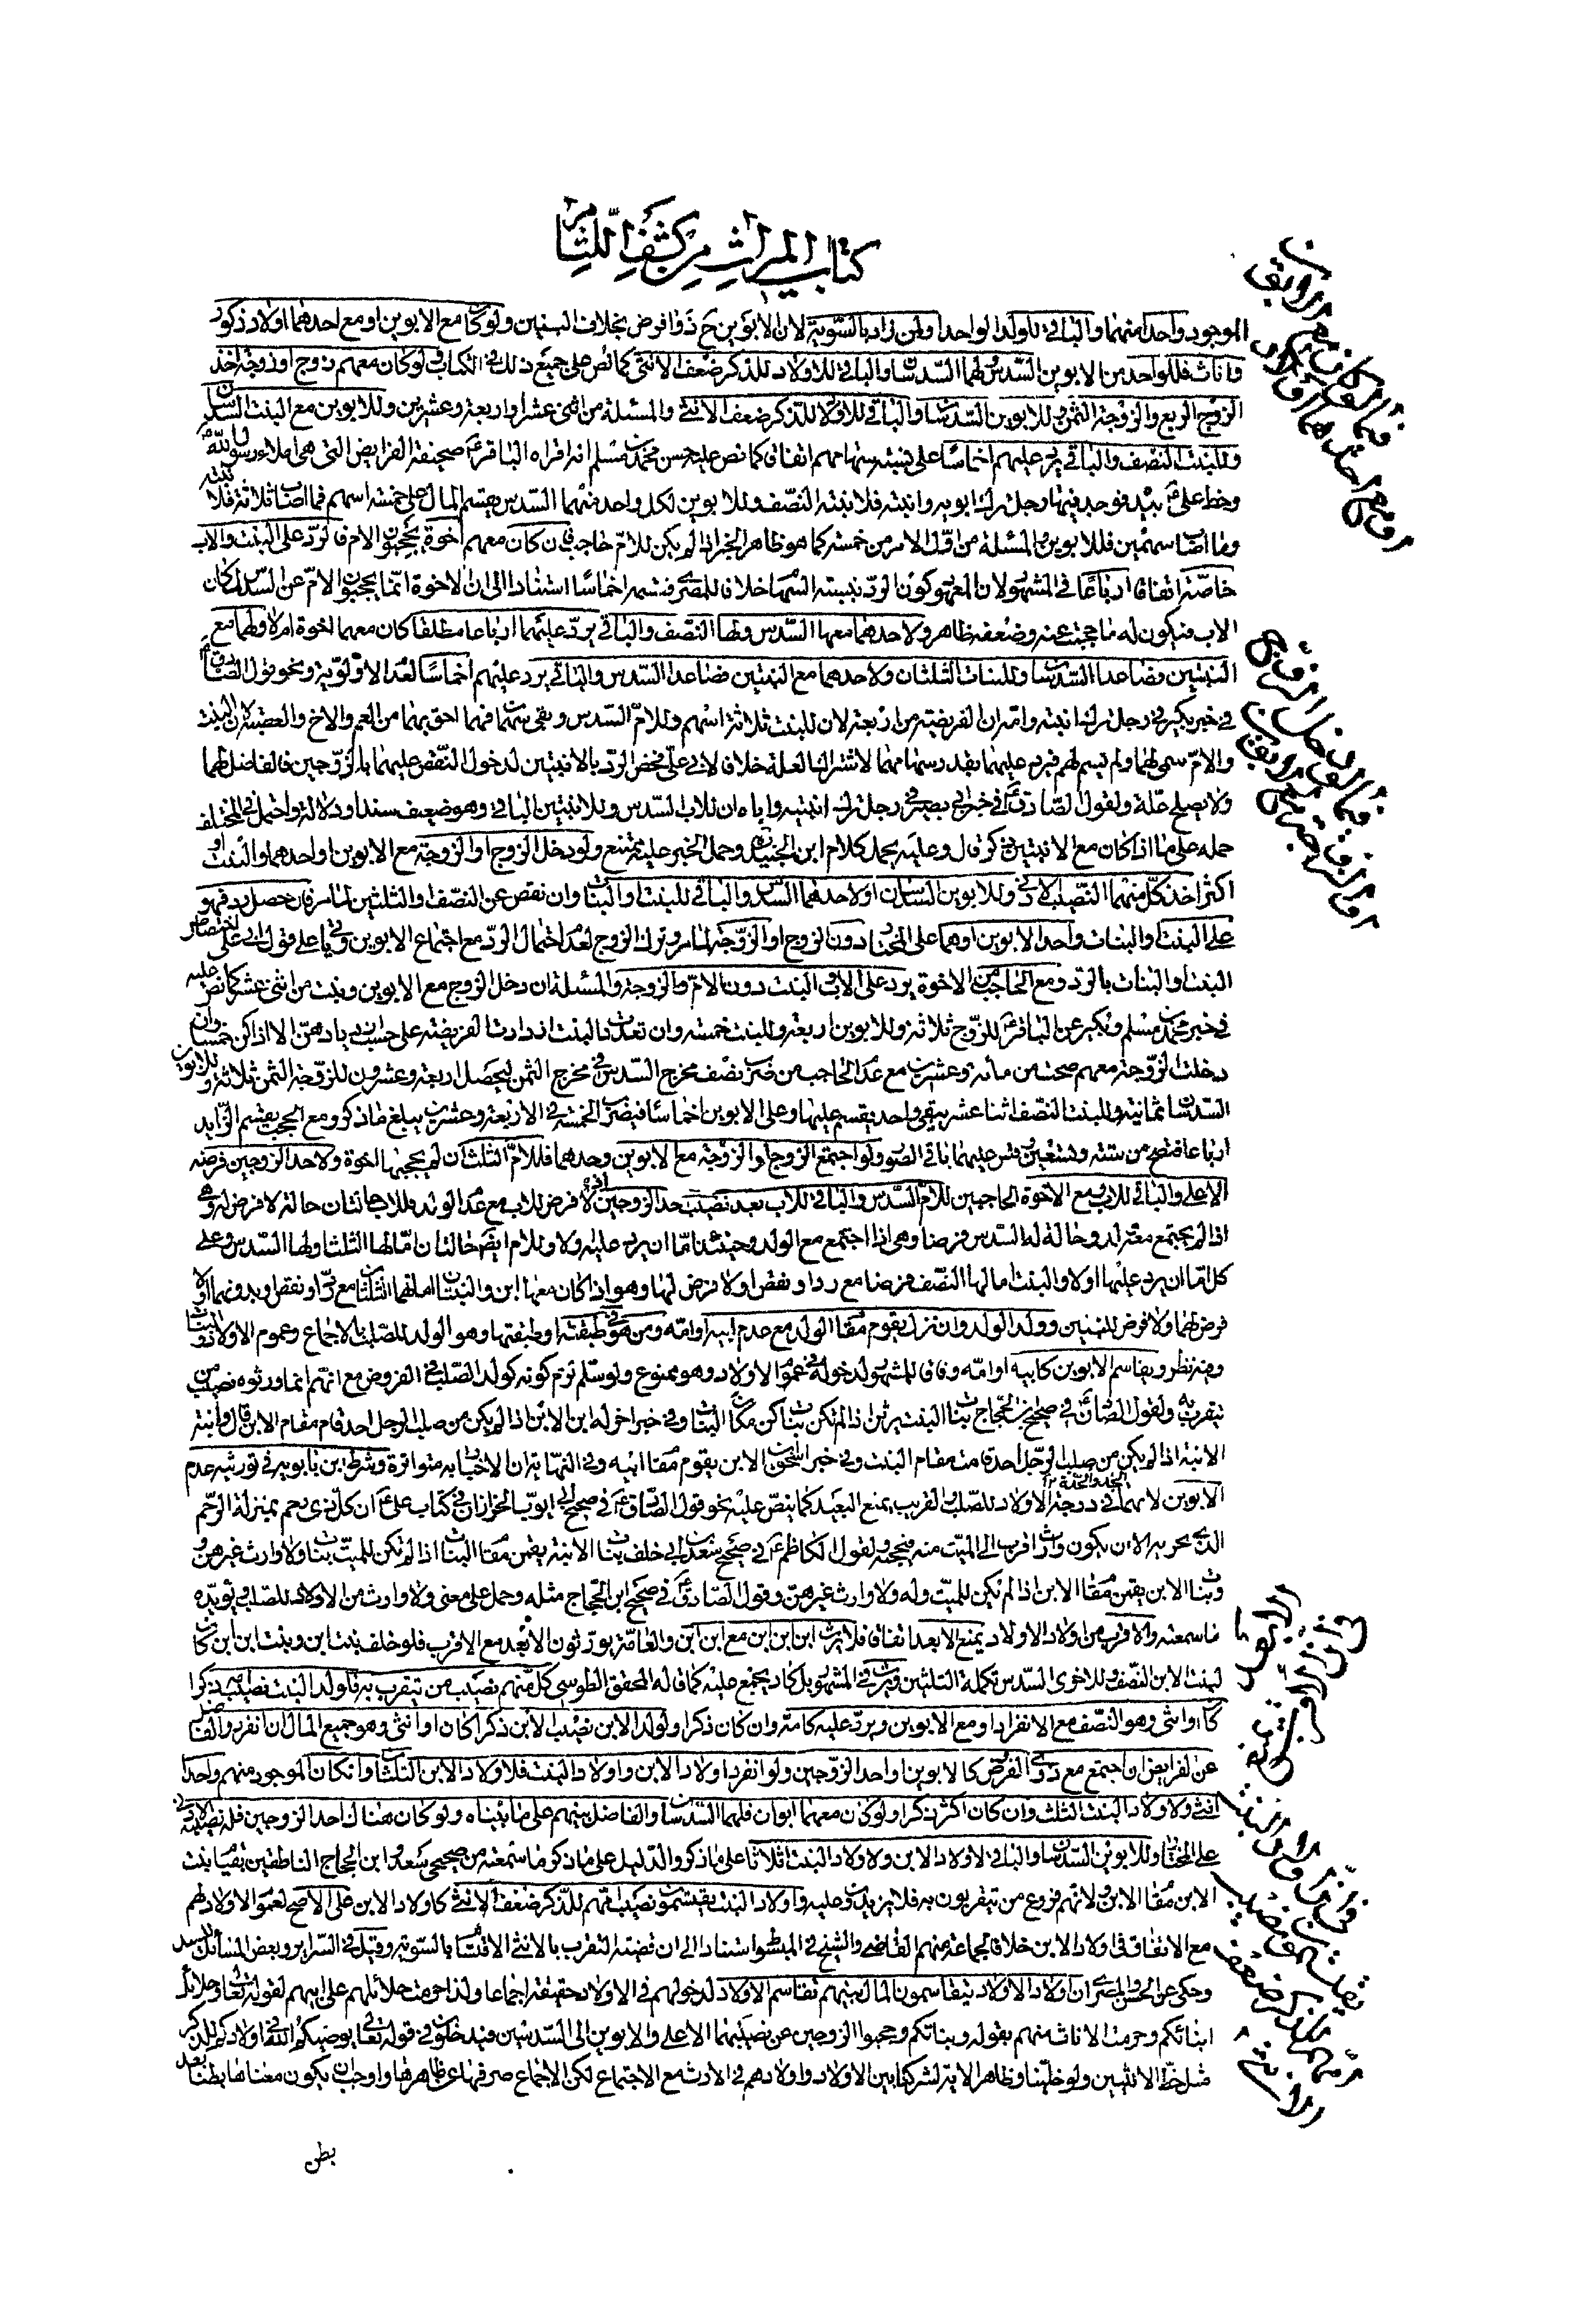 كتاب الميراث من كشف اللثام
الموجود واحدا منهما والباقي للولد الواحد او لمن زاد بالسوية لان الابوين ح ذوا فرض بخلاف البنين ولو كان مع الابوين او مع احدهما اولاد ذكور
واناث فللواحد من الابوين السدس ولهما السدسان والباقي للاولاد للذكر ضعف الانثى كما نص على جميع ذلك في الكتاب ولو كان معهم زوج او زوجة اخذ
الزوج الربع والزوجة الثمن وللابوين السدسان والباقي للاولاد للذكر ضعف الانثى والمسئلة من اثنى عشر او اربعة وعشرين وللابوين مع البنت السدسان
وللبنت النصف والباقي يرد عليهم اخماسا على نسبة سهامهم اتفاقا كما نص عليه حسن محمد بن مسلم انه اقراه الباقر ع صحيفة الفرايض التي هي املاء رسول الله ص
وخط علي ع بيده فوجد فيها رجل ترك ابويه وابنته فلابنته النصف وللابوين لكل واحد منهما السدس يقسم المال على خمسة اسهم فما اصاب ثلاثة فللابنة
وما اصاب سهمين فللابوين والمسئلة من اول الامر من خمسة كما هو ظاهر الخبر اذا لم يكن للام حاجب فان كان معهم اخوة يحجبون الام فالرد على البنت والاب
خاصة اتفاقا ارباعا في المشهور لان المعهود كون الرد بنسبة السهام خلافا للمصري فقسمه اخماسا استنادا الى ان الاخوة انما يحجبون الام عن السدس لمكان
الاب فيكون له ما حجبت عنه وضعفه ظاهر ولاحدهما معها السدس ولها النصف والباقي يرد عليهما ارباعا مطلقا كان معهما اخوة ام لا ولهما مع
البنتين فصاعدا السدسان وللبنات الثلثان ولاحدهما مع البنتين فصاعدا السدس والباقي يرد عليهم اخماسا لعدم الاولوية ونحو قول الصادق ع
في خبر بكير في رجل ترك ابنته وامه ان الفريضة من اربعة لان للبنت ثلاثة اسهم وللام السدس وبقي سهمان فهما احق بهما من العم والاخ والعصبة لان البنت
والام سمى لهما ولم يسم لهم فيرد عليهما بقدر سهامهما لاشتراك العلة خلافا لابي علي فخص الرد بالابنتين لدخول النقص عليهما بالزوجين فالفاضل لهما
ولا يصلح علة ولقول الصادق ع في خبر ابي بصير في رجل ترك ابنتيه واباه ان للاب السدس وللابنتين الباقي وهو ضعيف سندا ودلالة واحتمل في المختلف
حمله على ما اذا كان مع الابنتين ذكر قال وعليه يحمل كلام ابن الجنيد وحمل الخبر عليه ممتنع ولو دخل الزوج او الزوجة مع الابوين او احدهما والبنت او
اكثر اخذ كل منهما النصيب الادنى وللابوين السدسان او لاحدهما السدس والباقي للبنت او البنات وان نقص عن النصف او الثلثين لما مر فان حصل رد فهو
على البنت او البنات واحد الابوين او هما على المختار دون الزوج او الزوجة لما مر وترك الزوج لعدم احتمال الرد مع اجتماع الابوين وفيها على قول ابي علي اختصاص
البنت او البنات بالرد ومع الحاجب من الاخوة يرد على الاب والبنت دون الام والزوجة والمسئلة ان دخل الزوج مع الابوين وبنت من اثنى عشر كما نص عليه
في خبر محمد بن مسلم وبكير عن الباقر ع للزوج ثلاثة وللابوين اربعة وللبنت خمسة وان تعددت البنت
دخلت الزوجة معهم صحت من مائة وعشرين مع عدم الحاجب من ضرب نصف مخرج السدس في مخرج الثمن ليحصل اربعة وعشرون للزوجة الثمن ثلاثة وللابوين
السدسان ثمانية وللبنت النصف اثنا عشر يبقى واحد يقسم عليها وعلى الابوين اخماسا فيضرب الخمسة في الاربعة وعشرين يبلغ ما ذكر ومع الحجب يقسم الزايد
ارباعا فتصح من ستة وتسعين وقس عليهما باقي الصور ولو اجتمع الزوج او الزوجة مع الابوين وحدهما فللام الثلث ان لم يحجبها اخوة ولاحد الزوجين فرضه
الاعلى والباقي للاب ومع الاخوة الحاجبين للام السدس والباقي للاب بعد نصيب احد الزوجين اذ لا فرض للاب مع عدم الولد وللاب حالتان حالة لا فرض له وهي
اذا لم يجتمع معه ولد وحالة له السدس فرضا وهي اذا اجتمع مع الولد وحينئذ اما ان يرد عليه ولا وللام ايضا حالتان اما لها الثلث او لها السدس وعلى
كل اما ان يرد عليها او لا وللبنت اما لها النصف فرضا مع رد او نقص او لا فرض لها وهو اذا كان معها ابن والبنتان اما لهما الثلثان مع رد او نقص او بدونهما او لا
فرض لهما ولا فرض للبنين وولد الولد وان نزل يقوم مقام الولد مع عدم ابيه او امه ومن هو في طبقته او طبقتها وهو الولد للصلب بالاجماع وعموم الاولاد والبنات
وفيه نظر ويقاسم الابوين كابيه او امه وفاقا للمشهور لدخوله في عموم الاولاد وهو ممنوع ولو سلم لزم كونه كولد الصلب في الفروض مع انهم انما ورثوه نصيب من
يتقرب به ولقول الصادق ع في صحيح ابن الحجاج بنات البنت يرثن اذا لم تكن بنات كن مكان البنات وفي خبر اخر له ابن الابن اذا لم يكن من صلب الرجل احد قام مقام الابن قال وابنة
الابنة اذا لم يكن من صلب الرجل احد قامت مقام البنت وفي خبر اسحق ابن الابن يقوم مقام ابيه وفي النهاية ان الاخبار به متواترة وشرط ابن بابويه في توريثه عدم
الابوين لانهما في درجة الاولاد للصلب والقريب يمنع البعيد كما ينص عليه نحو قول الصادق ع في صحيح ابي ايوب الخزاز ان في كتاب علي ع ان كل ذي رحم بمنزلة الرحم
الذي يجر به الا ان يكون وارث اقرب الى الميت منه فيحجبه ولقول الكاظم ع في صحيح سعد بن ابي خلف بنات الابنة يقمن مقام البنات اذا لم تكن للميت بنات ولا وارث غيرهن و
بنات الابن يقمن مقام الابن اذا لم يكن للميت ولد ولا وارث غيرهن وقول الصادق ع في صحيح ابن الحجاج مثله وحمل على معنى ولا وارث من الاولاد للصلب ويؤيده
ما سمعته والاقرب من اولاد الاولاد يمنع الابعد اتفاقا فلا يرث ابن ابن ابن مع ابن ابن والعامة يورثون الابعد مع الاقرب فلو خلف بنت ابن وبنت ابن ابن كان
لبنت الابن النصف وللاخرى السدس تكملة الثلثين ويرث في المشهور بل كاد يجمع عليه كما قاله المحقق الطوسي كل منهم نصيب من يتقرب به فلولد البنت نصيبها ذكرا
كان او انثى وهو النصف مع الانفراد او مع الابوين ويرد عليه كامه وان كان ذكرا ولولد الابن نصيب الابن ذكرا كان او انثى وهو جميع المال ان انفرد والفاضل
عن الفرايض ان اجتمع مع ذوي الفرض كالابوين او احد الزوجين ولو انفرد اولاد الابن واولاد البنت فلاولاد الابن الثلثان وان كان الموجود منهم واحدا
انثى ولاولاد البنت الثلث وان كان اكثر ذكرا ولو كان معهما ابوان فلهما السدسان والفاضل بينهم على ما بيناه ولو كان هناك احد الزوجين فله نصيبه الادنى
على المختار وللابوين السدسان والباقي لاولاد الابن ولاولاد البنت اثلاثا على ما ذكر والدليل على ما ذكر ما سمعته من صحيحي سعد وابن الحجاج الناطقين بقيام بنت
الابن مقام الابن ولانهم فروع من يتقربون به فلا يزيدون عليه واولاد البنت يقتسمون نصيب امهم للذكر ضعف الانثى كاولاد الابن على الاصح لعموم الاولاد لهم
مع الاتفاق في اولاد الابن خلافا لجماعة منهم القاضي والشيخ في المبسوط استنادا الى ان قضية التقرب بالانثى الاقتسام بالسوية وقيل في السراير وبعض المسائل للسيد
وحكي عن الحسن والمصري ان اولاد الاولاد يتقاسمون المال بينهم تقاسم الاولاد لدخولهم في الاولاد حقيقة اجماعا ولذا حرمت حلائلهم على ابيهم لقوله تعالى وحلائل
ابنائكم وحرمت الاناث منهم بقوله وبناتكم وحجبوا الزوجين عن نصيبهما الاعلى والابوين الى السدسين فيدخلون في قوله تعالى يوصيكم الله في اولادكم للذكر
مثل حظ الانثيين ولو خلينا وظاهر الاية لشركنا بين الاولاد واولادهم في الارث مع الاجتماع لكن الاجماع صرفها عن ظاهرها واوجب ان يكون معناها بطنا بعد
بطن